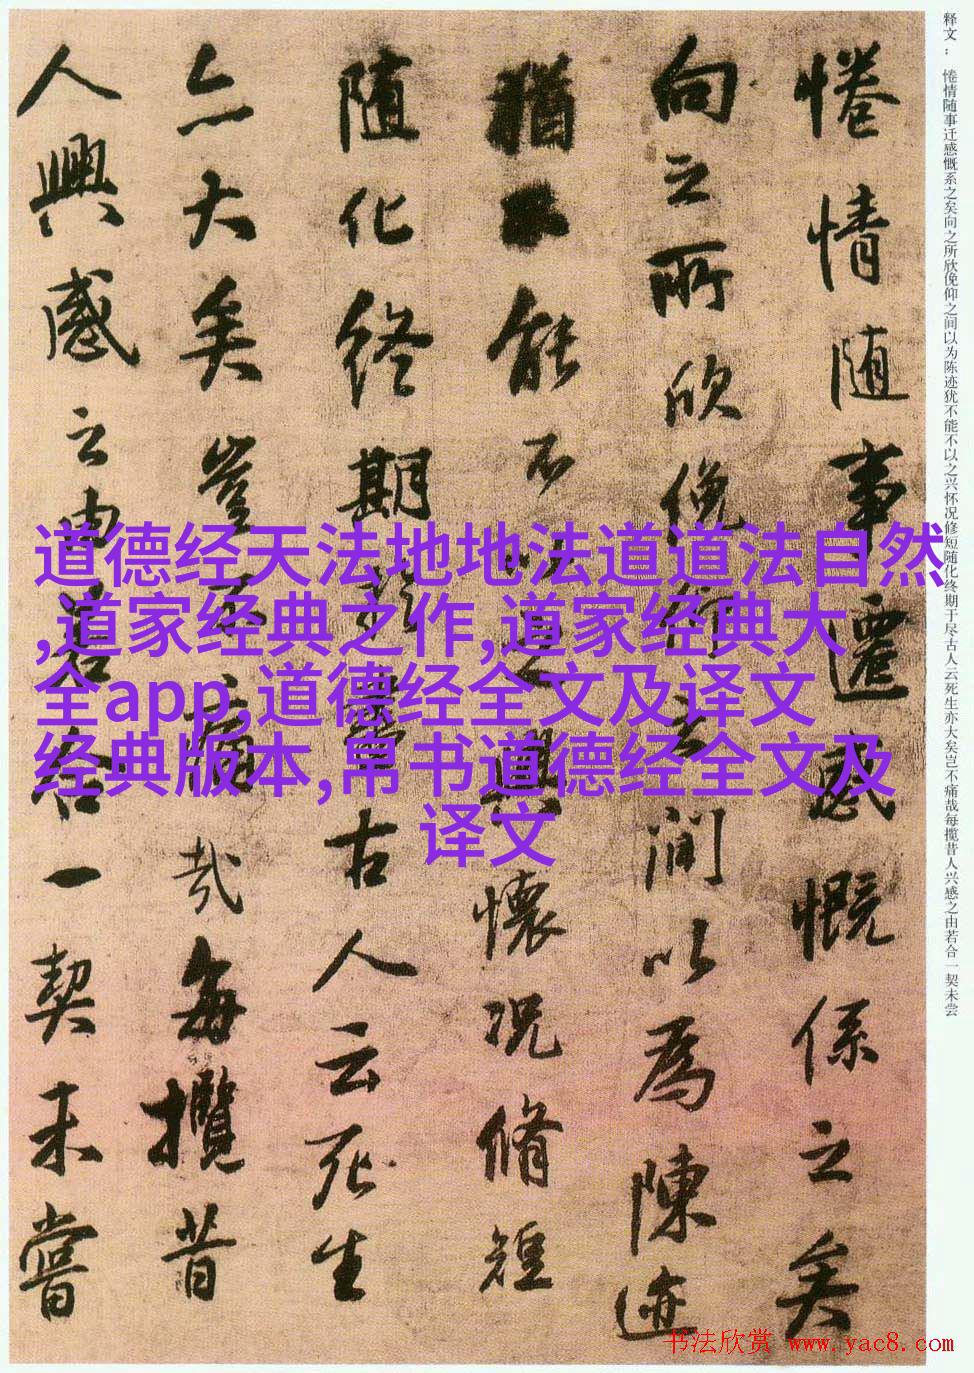 释文：惓情随事迁感慨系之矣向之所欣俛仰之间以为陈迹犹不能不以之兴怀况修短随化终期于尽古人云死生亦大矣岂不痛哉每揽昔人兴感之由若合一契未尝
惓情随事遷感慨係之矣
向之所欣俛仰之間以為陳迹
猶不能不以之興懷况脩短
随化終期於盡古人云死生
亦大矣豈不痛哉每攬昔
人興感之由若合一契未嘗
道德经天法地地法道道法自然
,道家经典之作,道家经典大
全app,道德经全文及译文
经典版本,帛书道德经全文及
译文
书法欣赏 www.yac8.com